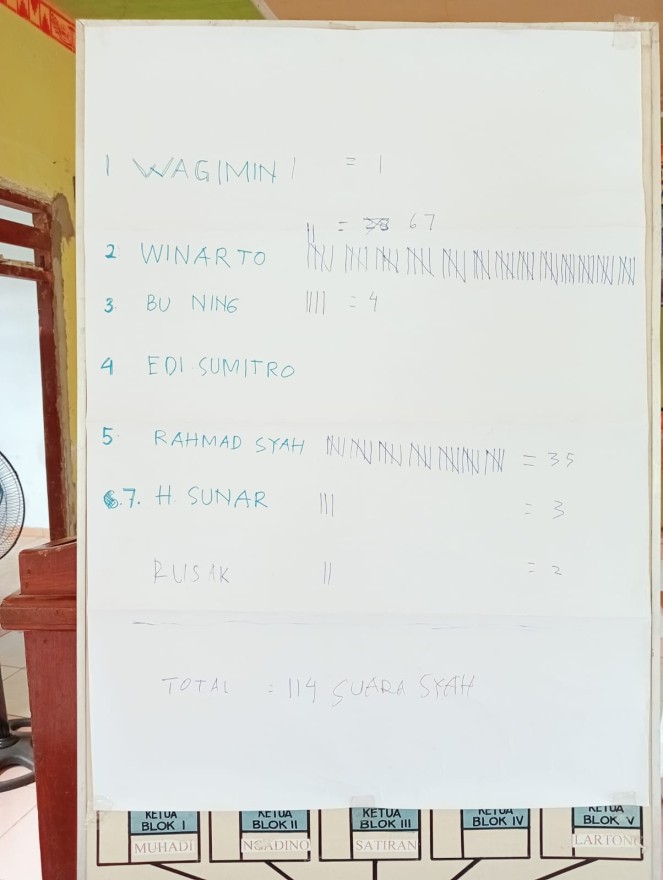 1 WAGIMIN | = 1
= 67
2 WINARTO
3. BU NING |||| = 4
4 EDI SUMITRO
5. RAHMAD SYAH = 35
7. H. SUNAR ||| = 3
RUSAK || = 2
TOTAL = 114 SUARA SYAH
KETUA BLOK I KETUA BLOK II KETUA BLOK III KETUA BLOK IV KETUA BLOK V
MUHADI NGADINO SATIRAN LARTONO